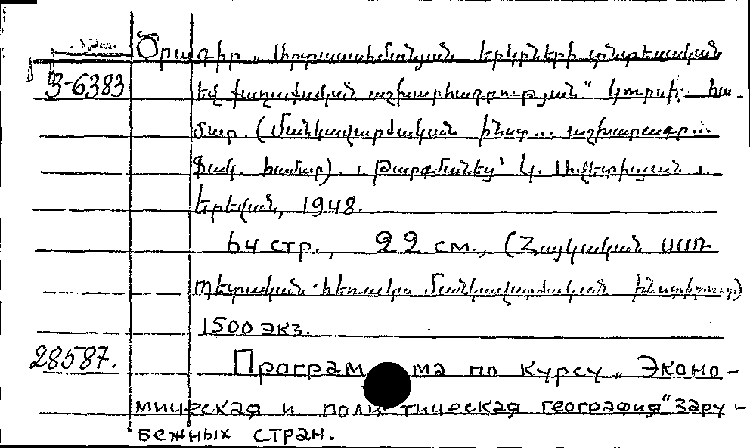 Ծրագիր „ Արտասահմանյան երկրների տնտեսական
3-6383 եվ քաղաքական աշխարհագրության“ կուրսի հա-
մար. (Մանկավարժական ինստ... աշխարհագր...
ֆակ. համար). Թարգմանեց՝ Կ. Ավետիսյան.
Երեվան, 1948.
64 стр., 22 см., (Հայկական ՍՍՌ
պետական հեռակա մանկավարժական ինստիտուտ)
1500 экз.
28587. Программа по курсу „Эконо-
мическая и политическая география“ зару-
бежных стран.